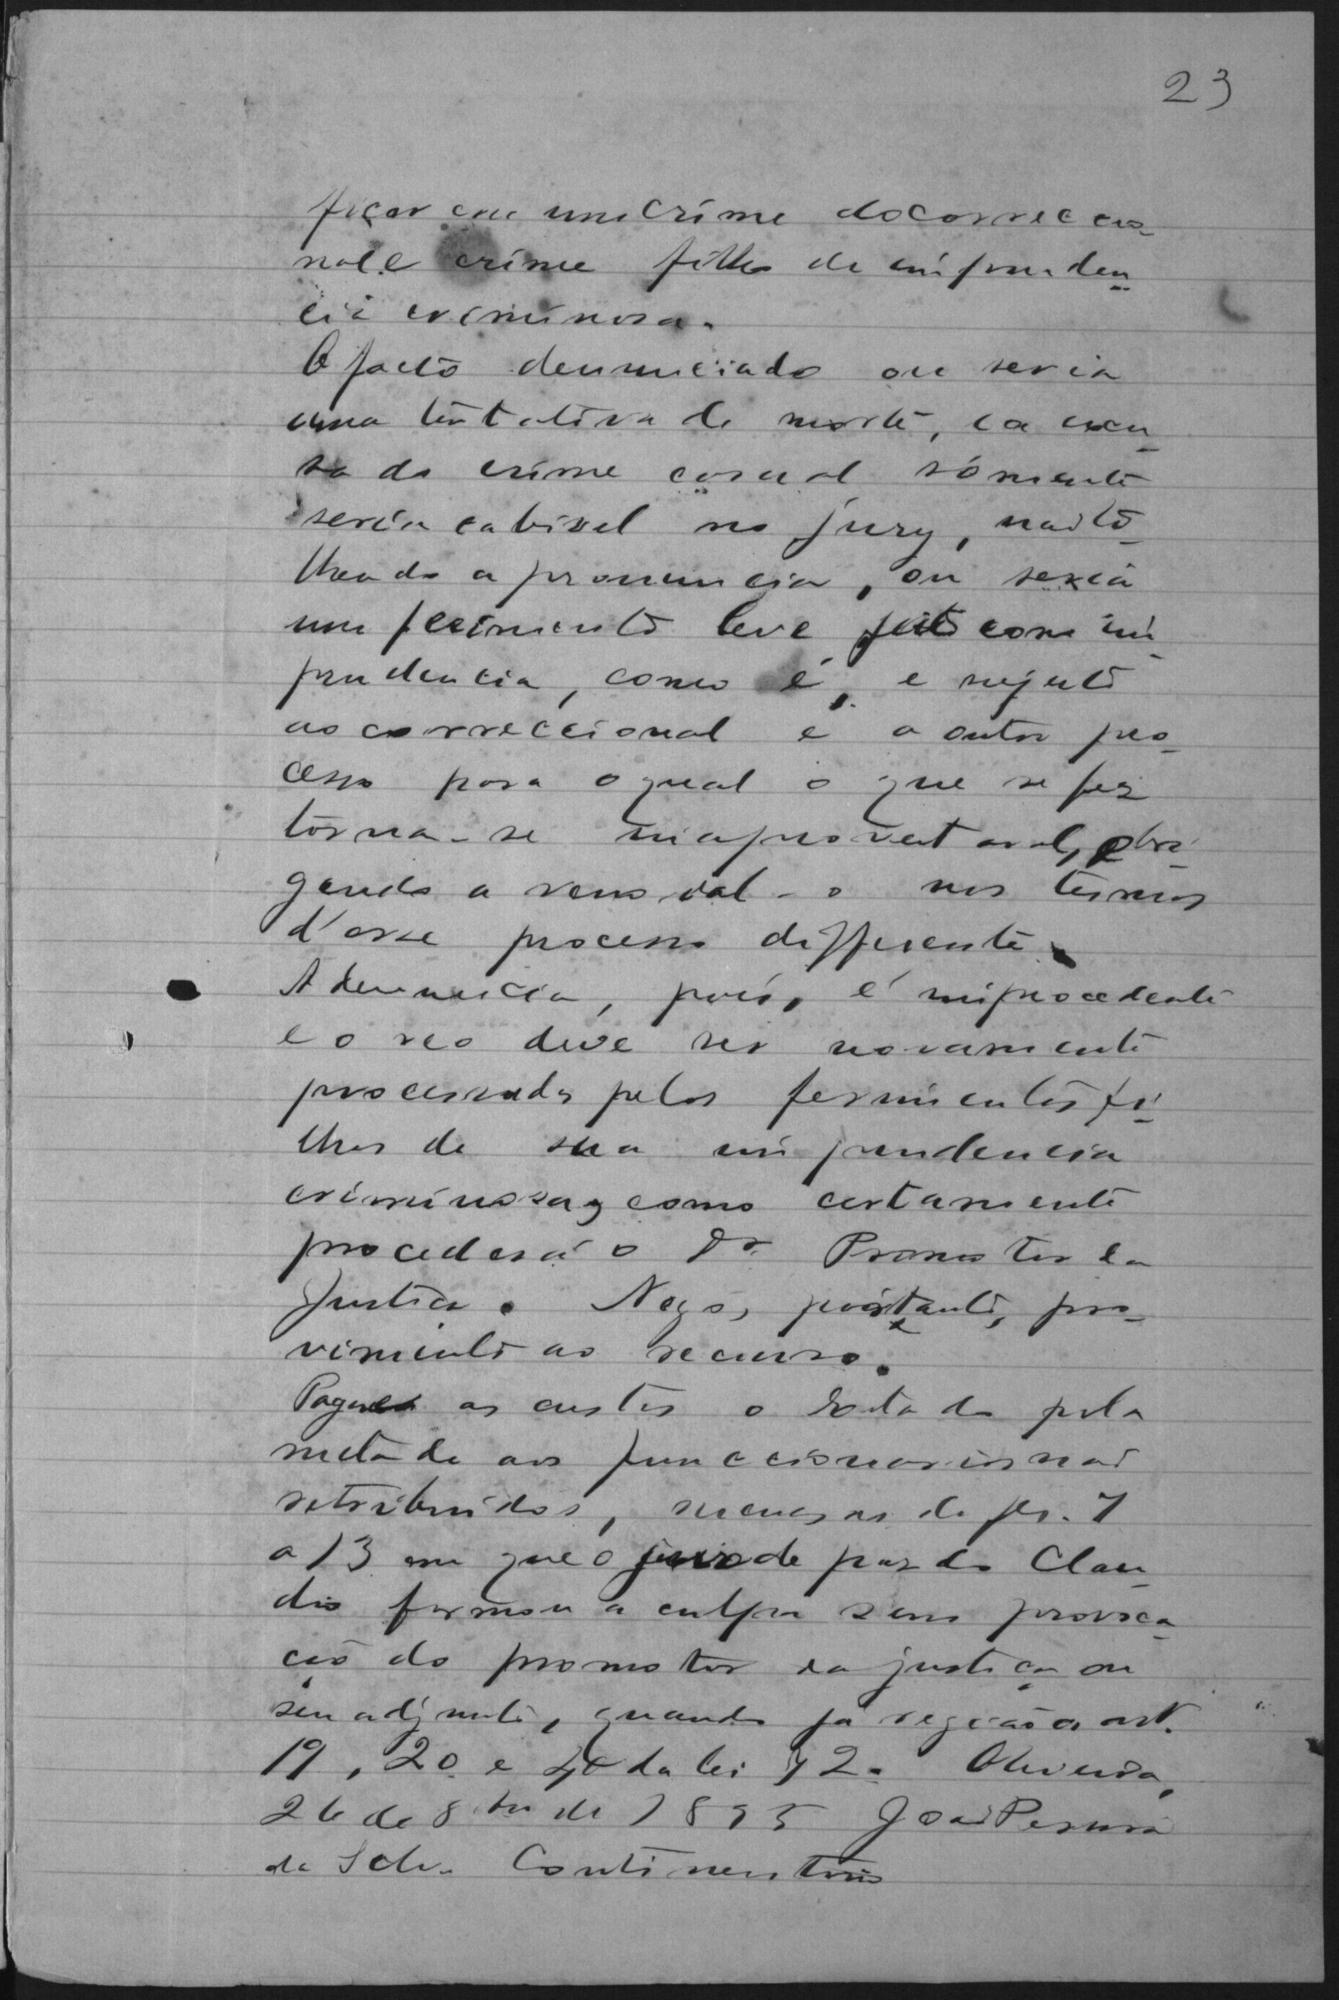 23
ficar em um crime do correccio-
nal e crime filho de impruden-
cia criminosa.
O facto denunciado ou seria
uma tentativa de morte, e a escu-
sa do crime casual sómente
seria cabivel no jury, não to-
lhendo a pronuncia, ou seria
um ferimento leve feito com im-
prudencia, como é, e sujeito
ao correccional e a outro pro-
cesso para o qual o que se fez
torna-se inaproveitavel, obri-
gando a renoval-o nos termos
d'esse processo differente.
A denuncia, pois, é improcedente
e o reo deve ser novamente
processado pelos ferimentos fi-
lhos de sua imprudencia
criminosa, como certamente
procederá o Dr. Promotor da
Justiça. Nego, portanto, pro-
vimento ao recurso.
Pague as custas o Estado pela
metade aos funccionarios não
retribuidos, menos as de fls. 7
a 13 em que o juiz de paz do Clau-
dio formou a culpa sem provoca-
ção do promotor da justiça ou
seu adjunto, quando já região os art.
19, 20 e 40 da lei 72. Oliveira,
26 de 8bro de 1895 João Pereira
da Silva Continentino